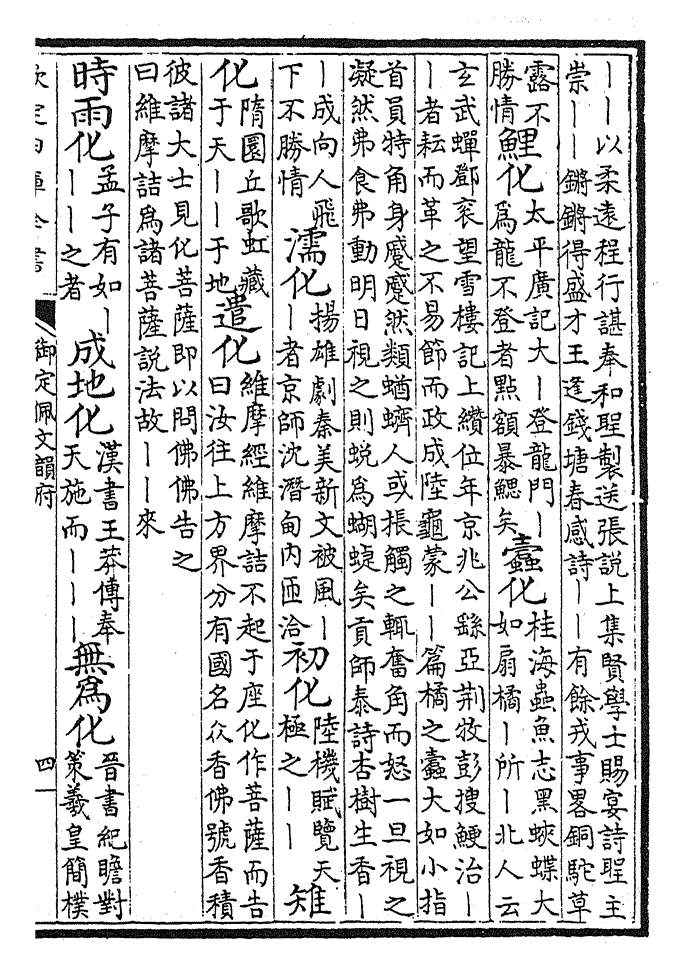 ｜｜以柔遠程行諶奉和聖製送張説上集賢學士賜宴詩聖主
崇｜｜鏘鏘得盛才王逢錢塘春感詩｜｜有餘戎事畧銅駝草
露不
勝情
鯉化
太平廣記大｜登龍門｜
爲龍不登者點額暴鰓矣
蠧化
桂海蟲魚志黑蛺蝶大
如扇橘｜所｜北人云
玄武蟬鄧衮望雪樓記上纘位年京兆公繇亞荆牧彭搜鯁治｜
｜者耘而革之不易節而政成陸龜蒙｜｜篇橘之蠧大如小指
首員特角身蹙蹙然類蝤蠐人或振觸之輒奮角而怒一旦視之
凝然弗食弗動明日視之則蜕爲蝴蜨矣貢師泰詩杏樹生香｜
｜成向人飛
下不勝情
濡化
揚雄劇秦美新文被風｜
｜者京師沈潛甸内匝洽
初化
陸機賦覽天
極之｜｜
雉
化
隋圜丘歌虹藏
于天｜｜于地
遣化
維摩經維摩詰不起于座化作菩薩而告
曰汝往上方界分有國名众香佛號香積
彼諸大士見化菩薩即以問佛佛告之
曰維摩詰爲諸菩薩説法故｜｜來
時雨化
孟子有如｜
｜｜之者
成地化
漢書王莽傳奉
天施而｜｜｜
無爲化
晉書紀瞻對
策羲皇簡樸
欽定四庫全書
御定佩文韻府
四